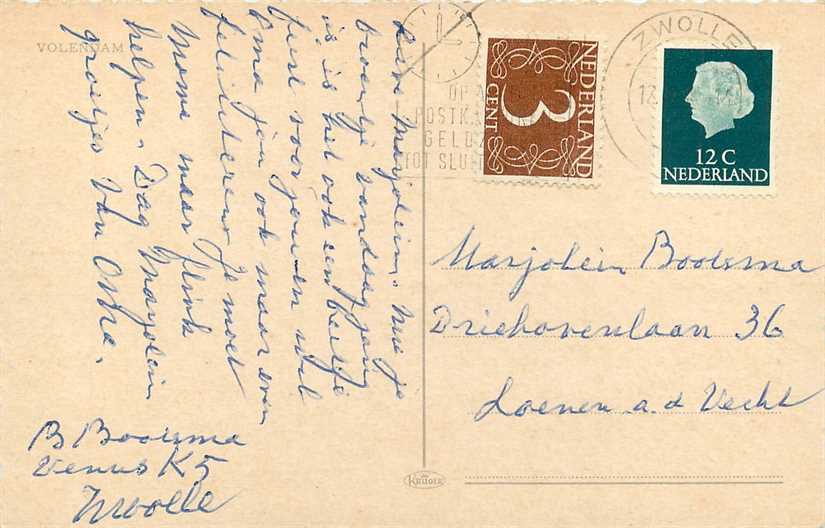 VOLENDAM
Lieve Marjolein. Nu je
broertje vandaag jarig
is is het ook een beetje
feest voor jou en wil
Oma jou ook maar even
feliciteren. Je moet
Mama maar flink
helpen. Dag Marjolein
groetjes van Oma.
B Bootsma
Venus K5
Zwolle
OP
POSTK
GELD
TOT SLU
NEDERLAND
3
CENT
ZWOLLE
12
12 C
NEDERLAND
Marjolein Bootsma
Driehovenlaan 36
Loenen a.d Vecht
KRÜGER